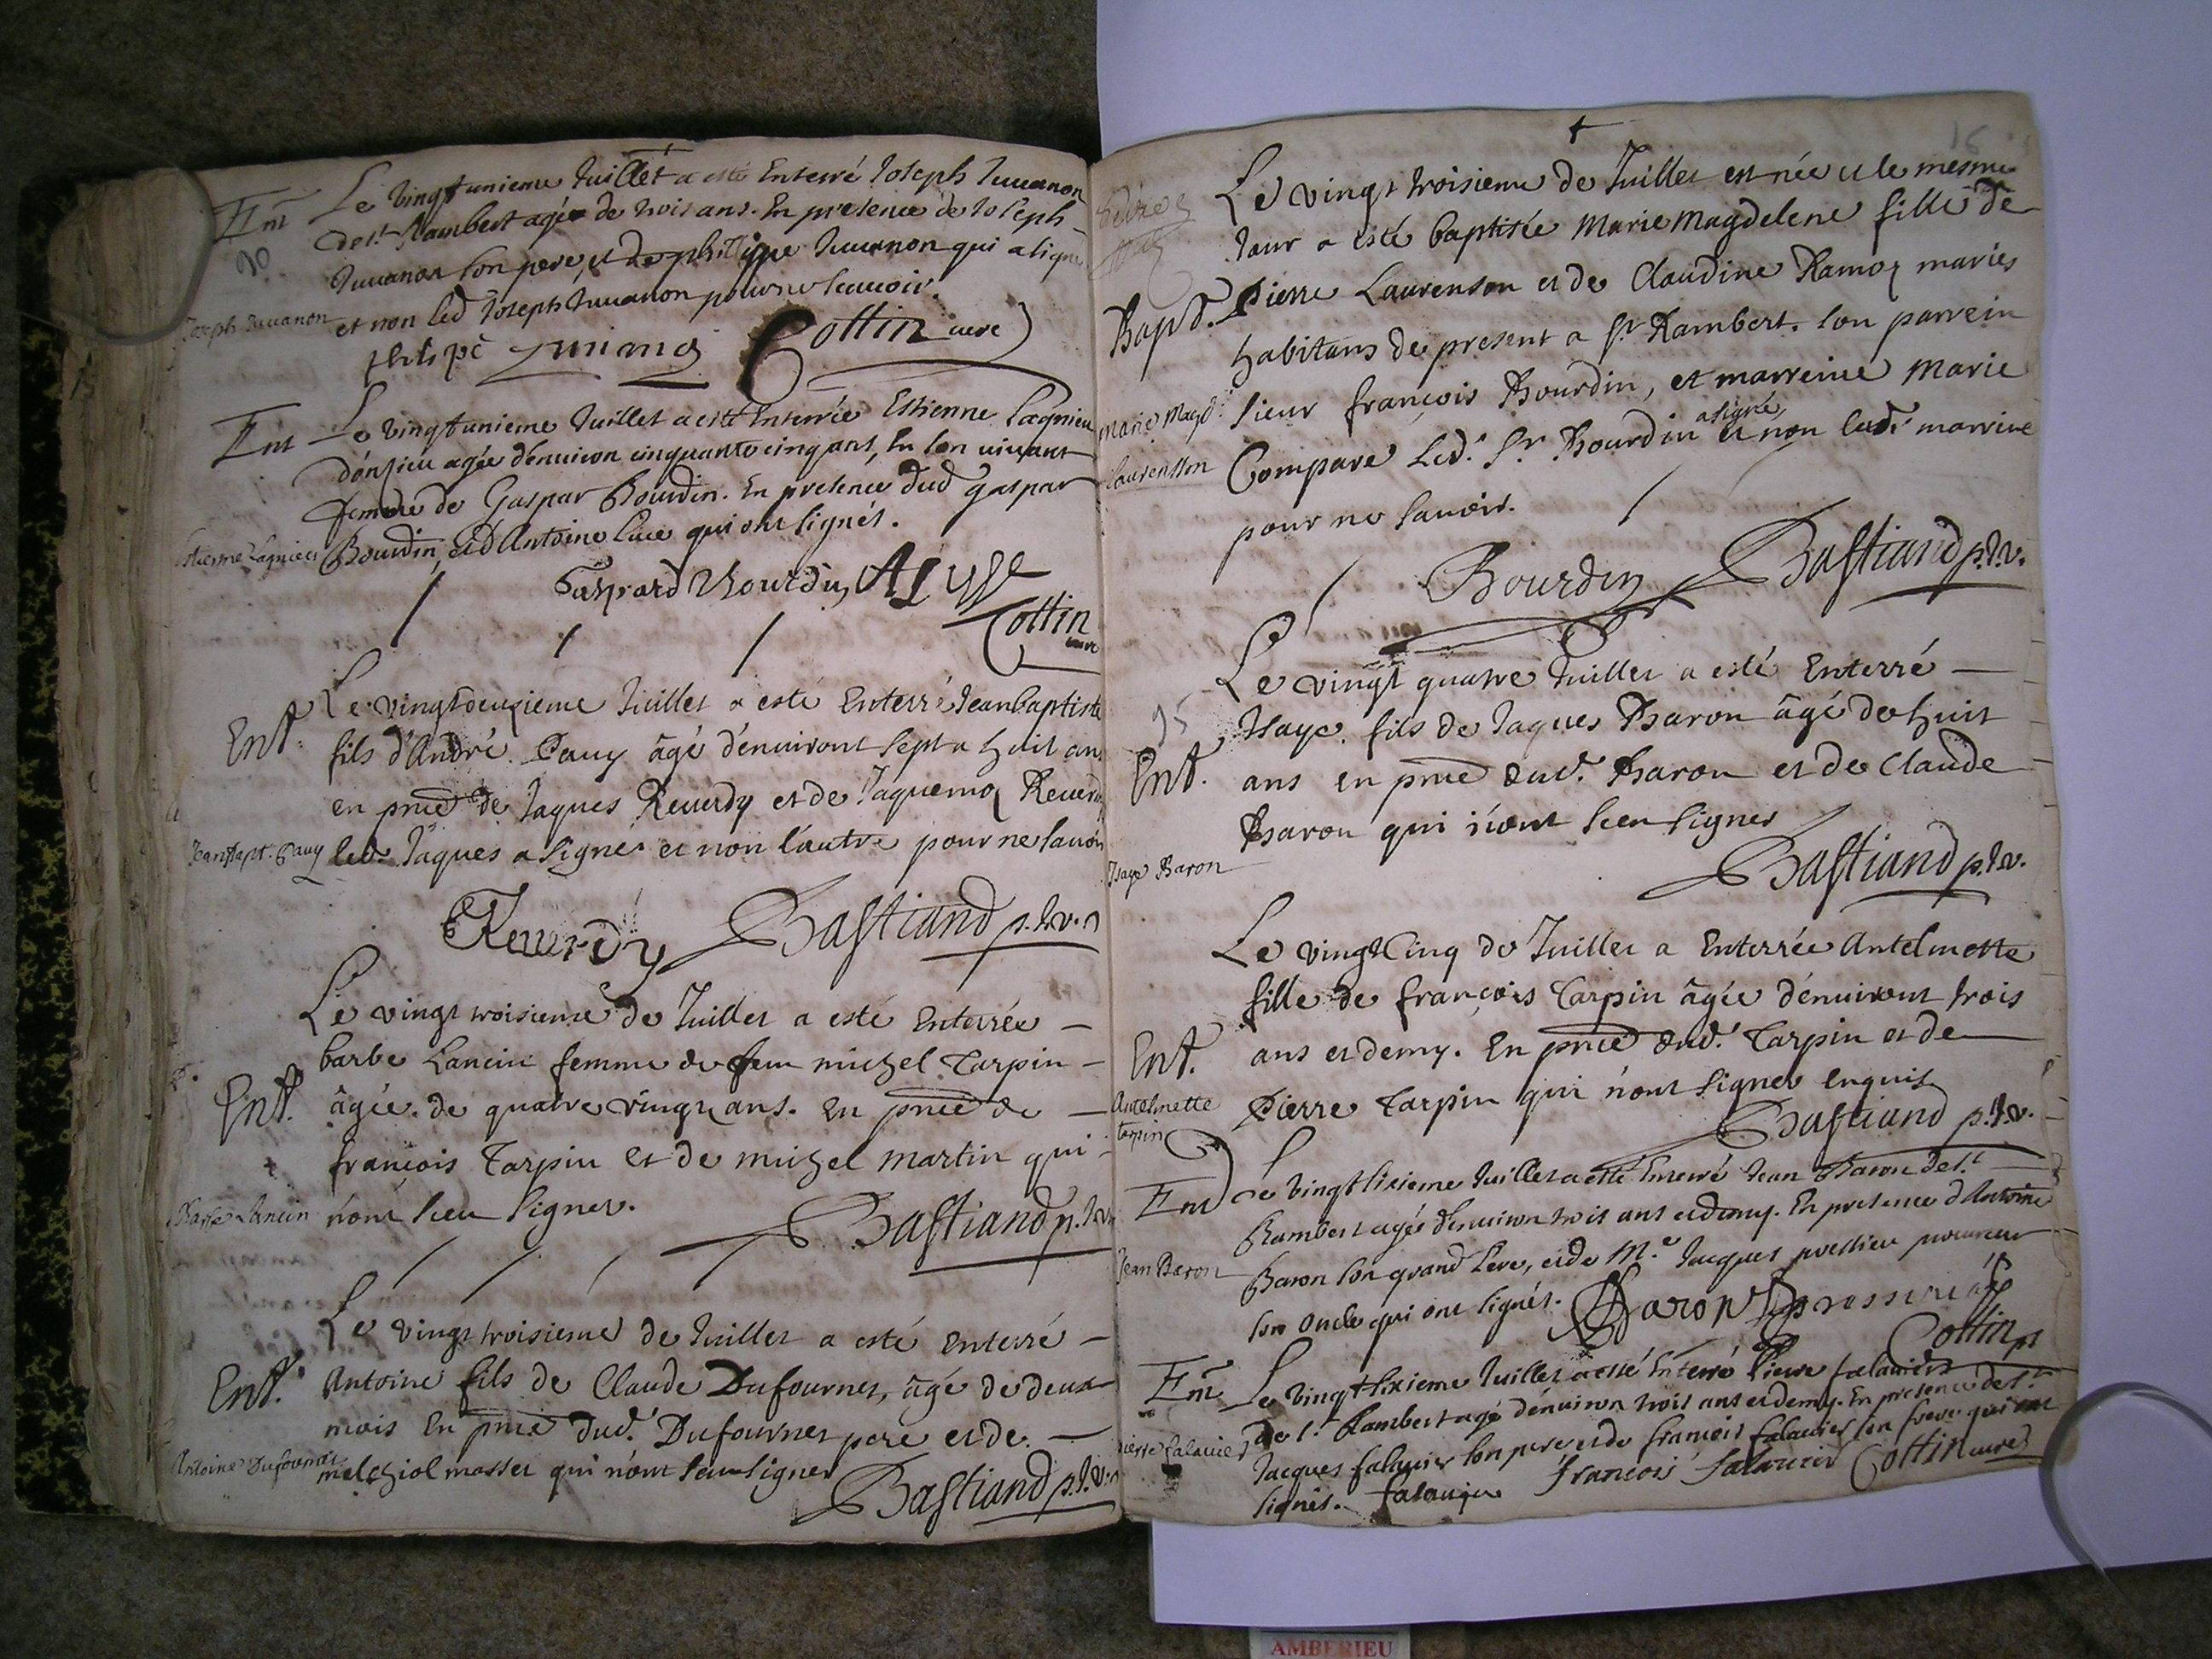 Ent
Le vingt unieme Juillet a esté Enterré Joseph Juuanon
de st Rambert agé de trois ans. En presence de Joseph
Juuanon son pere, et de philippe Juuanon qui a signé
Joseph Juuanon
et non led Joseph Juuanon pour ne scauoir.
Cottin curé
Ent
Le vingt unieme Juillet a esté Enterrée Estienne Lagnieu
agée d'enuiron cinquante cinq ans, En son uiuant
femme de Gaspar Bourdin. En presence dud gaspar
Estienne Lagnieu
Bourdin, et d'Antoine Luce qui ont signés.
Gaspard Bourdin
Cottin
curé
Ent.
Le vingt deuzieme Juillet a esté Enterré Jean baptiste
fils d'André Pauy âgé d'enuiront sept a huit ans
en pnce de Jaques Reuerdy et de Jaquemoz Reuerdy
Jean Bapt. Pauy
led. Jaques a signé et non l'autre pour ne sauoir
Reuerdy Bastiand p.tre v.
Le vingt troisieme de Juillet a esté Enterrée
barbe Lancin femme de feu michel Tarpin
Ent.
âgée de quatre vingt ans. En pnce de
françois Tarpin et de michel martin qui
Lancin
n'ont sceu signer.
Bastiand p.tre v.
Le vingt troisieme de Juillet a esté Enterré
Ent.
Antoine fils de Claude Dufournet, âgé de deux
mois En pnce dud. Dufournet pere et de
Antoine Dufournet
melchiol masset qui n'ont sceu signer
Bastiand p.tre v.
Le vingt troisieme de Juillet est née et le mesme
Jour a esté baptisée Marie Magdelene fille de
Bapt.
Pierre Laurenson et de Claudine Ramoz mariés
habitans de present a St. Rambert. son parrein
Marie Magd.
sieur françois Bourdin, et marreine Marie
a signé
Laurensson
Compare Led. Sr. Bourdin et non lad. marrine
pour ne sauoir.
Bourdin Bastiand p.tre v.
Le vingt quatre Juillet a esté Enterré
95
Isaye fils de Jaques Baron âgé de huit
Ent.
ans en pnce dud. Baron et de Claude
Baron qui n'ont sceu signer
Isaye Baron
Bastiand p.tre v.
Le vingt Cinq de Juillet a Enterrée Antelmette
fille de françois Tarpin âgée d'enuiront trois
Ent.
ans et demy. En pnce dud. Tarpin et de
Antelmette
tarpin
Pierre Tarpin qui n'ont signer enquis
Bastiand p.tre v.
Ent
Le vingt sixieme Juillet a esté Enterré Jean Baron de st.
Rambert agé d'enuiron trois ans et demy. En presence d'Antoine
Jean Baron
Baron son grand Pere, et de Me. Jacques pressieu procureur
son oncle qui ont signés. Baron
Cottin
Ent
Le vingt sixieme Juillet a esté Enterré Pierre falauier
de st. Rambert agé d'enuiron trois ans et demy. En presence de st.
Pierre falauier
Jacques falauier son pere et de francois falauier son frere qui ont
signés. falauier francois falauier Cottin curé
AMBERIEU